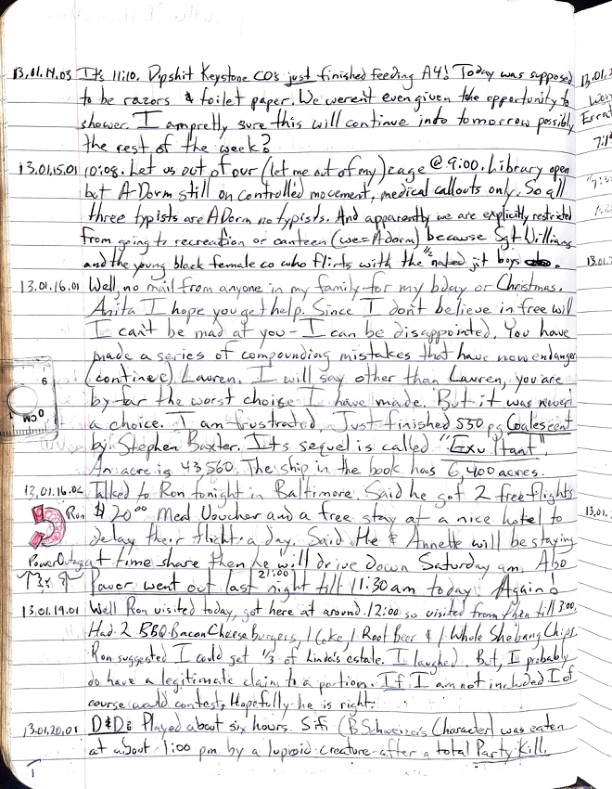 13.01.14.03 It's 11:10. Dipshit Keystone COs just finished feeding A4! Today was supposed
to be razors & toilet paper. We weren't even given the opportunity to
shower. I am pretty sure this will continue into tomorrow possibly
the rest of the week?
13.01.15.01 10:08. Let us out of our (let me out of my) cage @ 9:00. Library open
but A-Dorm still on controlled movement, medical callouts only. So all
three typists are A Dorm no typists. And apparently we are explicitly restricted
from going to recreation or canteen (we = A dorm) because Sgt Williams
and the young black female co who flirts with the 1/2 naked jit boys.
13.01.16.01 Well, no mail from anyone in my family for my bday or Christmas.
Anita I hope you get help. Since I don't believe in free will
I can't be mad at you - I can be disappointed. You have
made a series of compounding mistakes that have now endanger
(continue) Lauren. I will say other than Lauren, you are
by far the worst choice I have made. But it was never
a choice. I am frustrated. Just finished 530 pg Coalescent
by Stephen Baxter. Its sequel is called "Exultant".
An acre is 43,560. The ship in the book has 6,400 acres.
13.01.16.02 Talked to Ron tonight in Baltimore. Said he got 2 free flights
Ron $20.00 Meal Voucher and a free stay at a nice hotel to
delay their flight a day. Said He & Annette will be staying
at time share then he will drive down Saturday am. Also
Power Outage
Power went out last night 21:00 till 11:30 am today. Again!
13.01.19.01 Well Ron visited today, got here at around 12:00 so visited from then till 3:00.
Had 2 BBQ Bacon Cheese Burgers, 1 Coke, 1 Root Beer & 1 Whole Shebang Chips
Ron suggested I could get 1/3 of Linda's estate. I laughed. But, I probably
do have a legitimate claim to a portion. If I am not included I of
course would contest. Hopefully he is right.
13.01.20.01 D&D: Played about six hours. Sifi (B Character) was eaten
at about 1:00 pm by a lupoid creature after a total Party Kill.